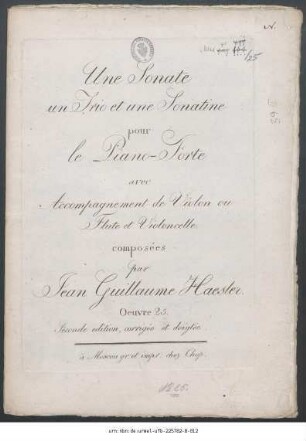 Une Sonate
un Trio et une Sonatine
pour
le Piano-Forte
avec
Accompagnement de Violon ou
Flute et Violoncelle
composées
par
Jean Guillaume Haesler
Oeuvre 23.
Seconde edition, corrigée et doigtée
à Moscou gr. et impr. chez